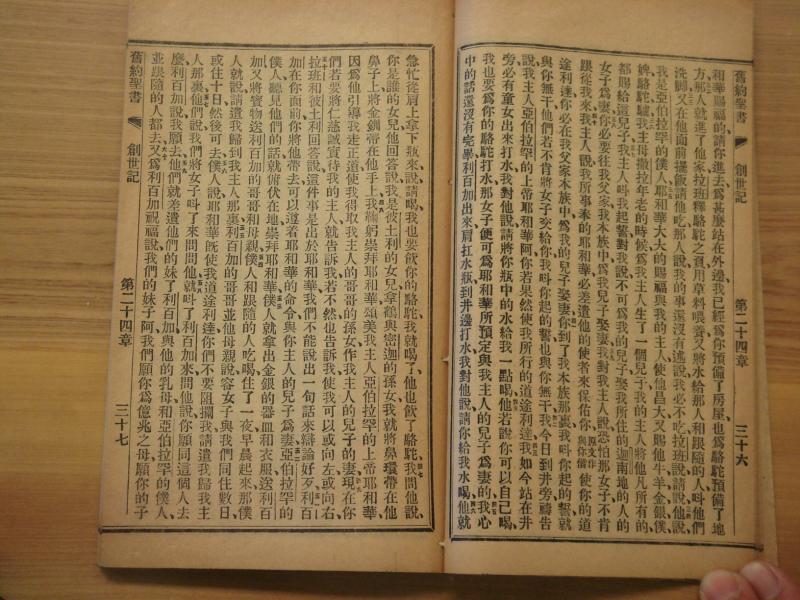 舊約聖書 創世記 第二十四章 三十六
和華賜福的請你進去爲甚麼站在外邊我已經爲你預備了房屋也爲駱駝預備了地
方、那人就進了他家拉班釋駱駝之負用草料喂養又將水給那人和跟隨的人叫他們
洗脚又在他面前擺飯請他吃那人說我的事還沒有述說我必不吃拉班說請說他說、
我是亞伯拉罕的僕人耶和華大大的賜福與我的主人使他昌大又賜他牛羊金銀僕
婢駱駝驢我主母撒拉年老的時候爲我主人生了一個兒子我的主人將他凡所有的
都賜給這兒子我主人叫我起誓對我說不可爲我的兒子娶我所住的迦南地的人的
女子爲妻你必要往我父家我本族中爲我兒子娶妻我對我主人說恐怕那女子不肯
跟從我來我主人說我所事奉的耶和華必差遣他的使者來保佑你原文作與你偕使你的道
途利達你必在我父家本族中爲我的兒子娶妻你到了我本族那裏我叫你起的誓就
與你無干他們若不肯將女子交給你我叫你起的誓也與你無干我今日到井旁禱告
說我主人亞伯拉罕的上帝耶和華阿你若果然使我所行的道途利達我如今站在井
旁必有童女出來打水我對他說請將你瓶中的水給我一點喝他若說你可以自己喝、
我也要爲你的駱駝打水那女子便可爲耶和華所預定與我主人的兒子爲妻的我心
中的話還沒有完畢利百加出來肩扛水瓶到井邊打水我對他說請你給我水喝他就
急忙從肩上拿下瓶來說請喝我也要飲你的駱駝我就喝了他也飲了駱駝我問他說、
你是誰的女兒他回答說我是彼土利的女兒拿鶴與密迦的孫女我就將鼻環帶在他
鼻子上將金釧帶在他手上我鞠躬崇拜耶和華頌美我主人亞伯拉罕的上帝耶和華、
因爲他引導我走正道使我得取我主人的哥哥的孫女作我主人的兒子的妻現在你
們若要將仁慈誠實待我的主人就告訴我若不然也告訴我使我可以或向左或向右、
拉班和彼土利回答說這件事是出於耶和華我們不能說出一句話來辯論好歹利百
加在你面前你將他帶去可以遵着耶和華的命令與你主人的兒子爲妻亞伯拉罕的
僕人聽見他們的話就俯伏在地崇拜耶和華僕人就拿出金銀的器皿和衣服送利百
加又將寶物送利百加的哥哥和母親僕人和跟隨的人吃喝住了一夜早晨起來那僕
人就說請遣我歸到我主人那裏利百加的哥哥並他母親說容女子與我們同住數日、
或住十日然後可去僕人說耶和華既使我道途利達你們不要阻攔我請遣我歸我主
人那裏他們說我們將女子叫了來問問他就叫了利百加來問他說你願同這個人去
麼利百加說我願去他們就差遣他們的妹了利百加與他的乳母和亞伯拉罕的僕人、
並跟隨的人都去又爲利百加祝福說我們的妹子阿我們願你爲億兆之母願你的子
舊約聖書 創世記 第二十四章 三十七